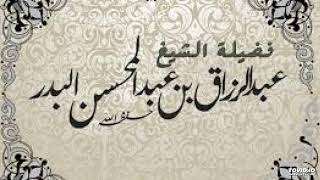 فضيلة الشيخ
عبدالرزاق بن عبدالمحسن البدر
حفظه الله